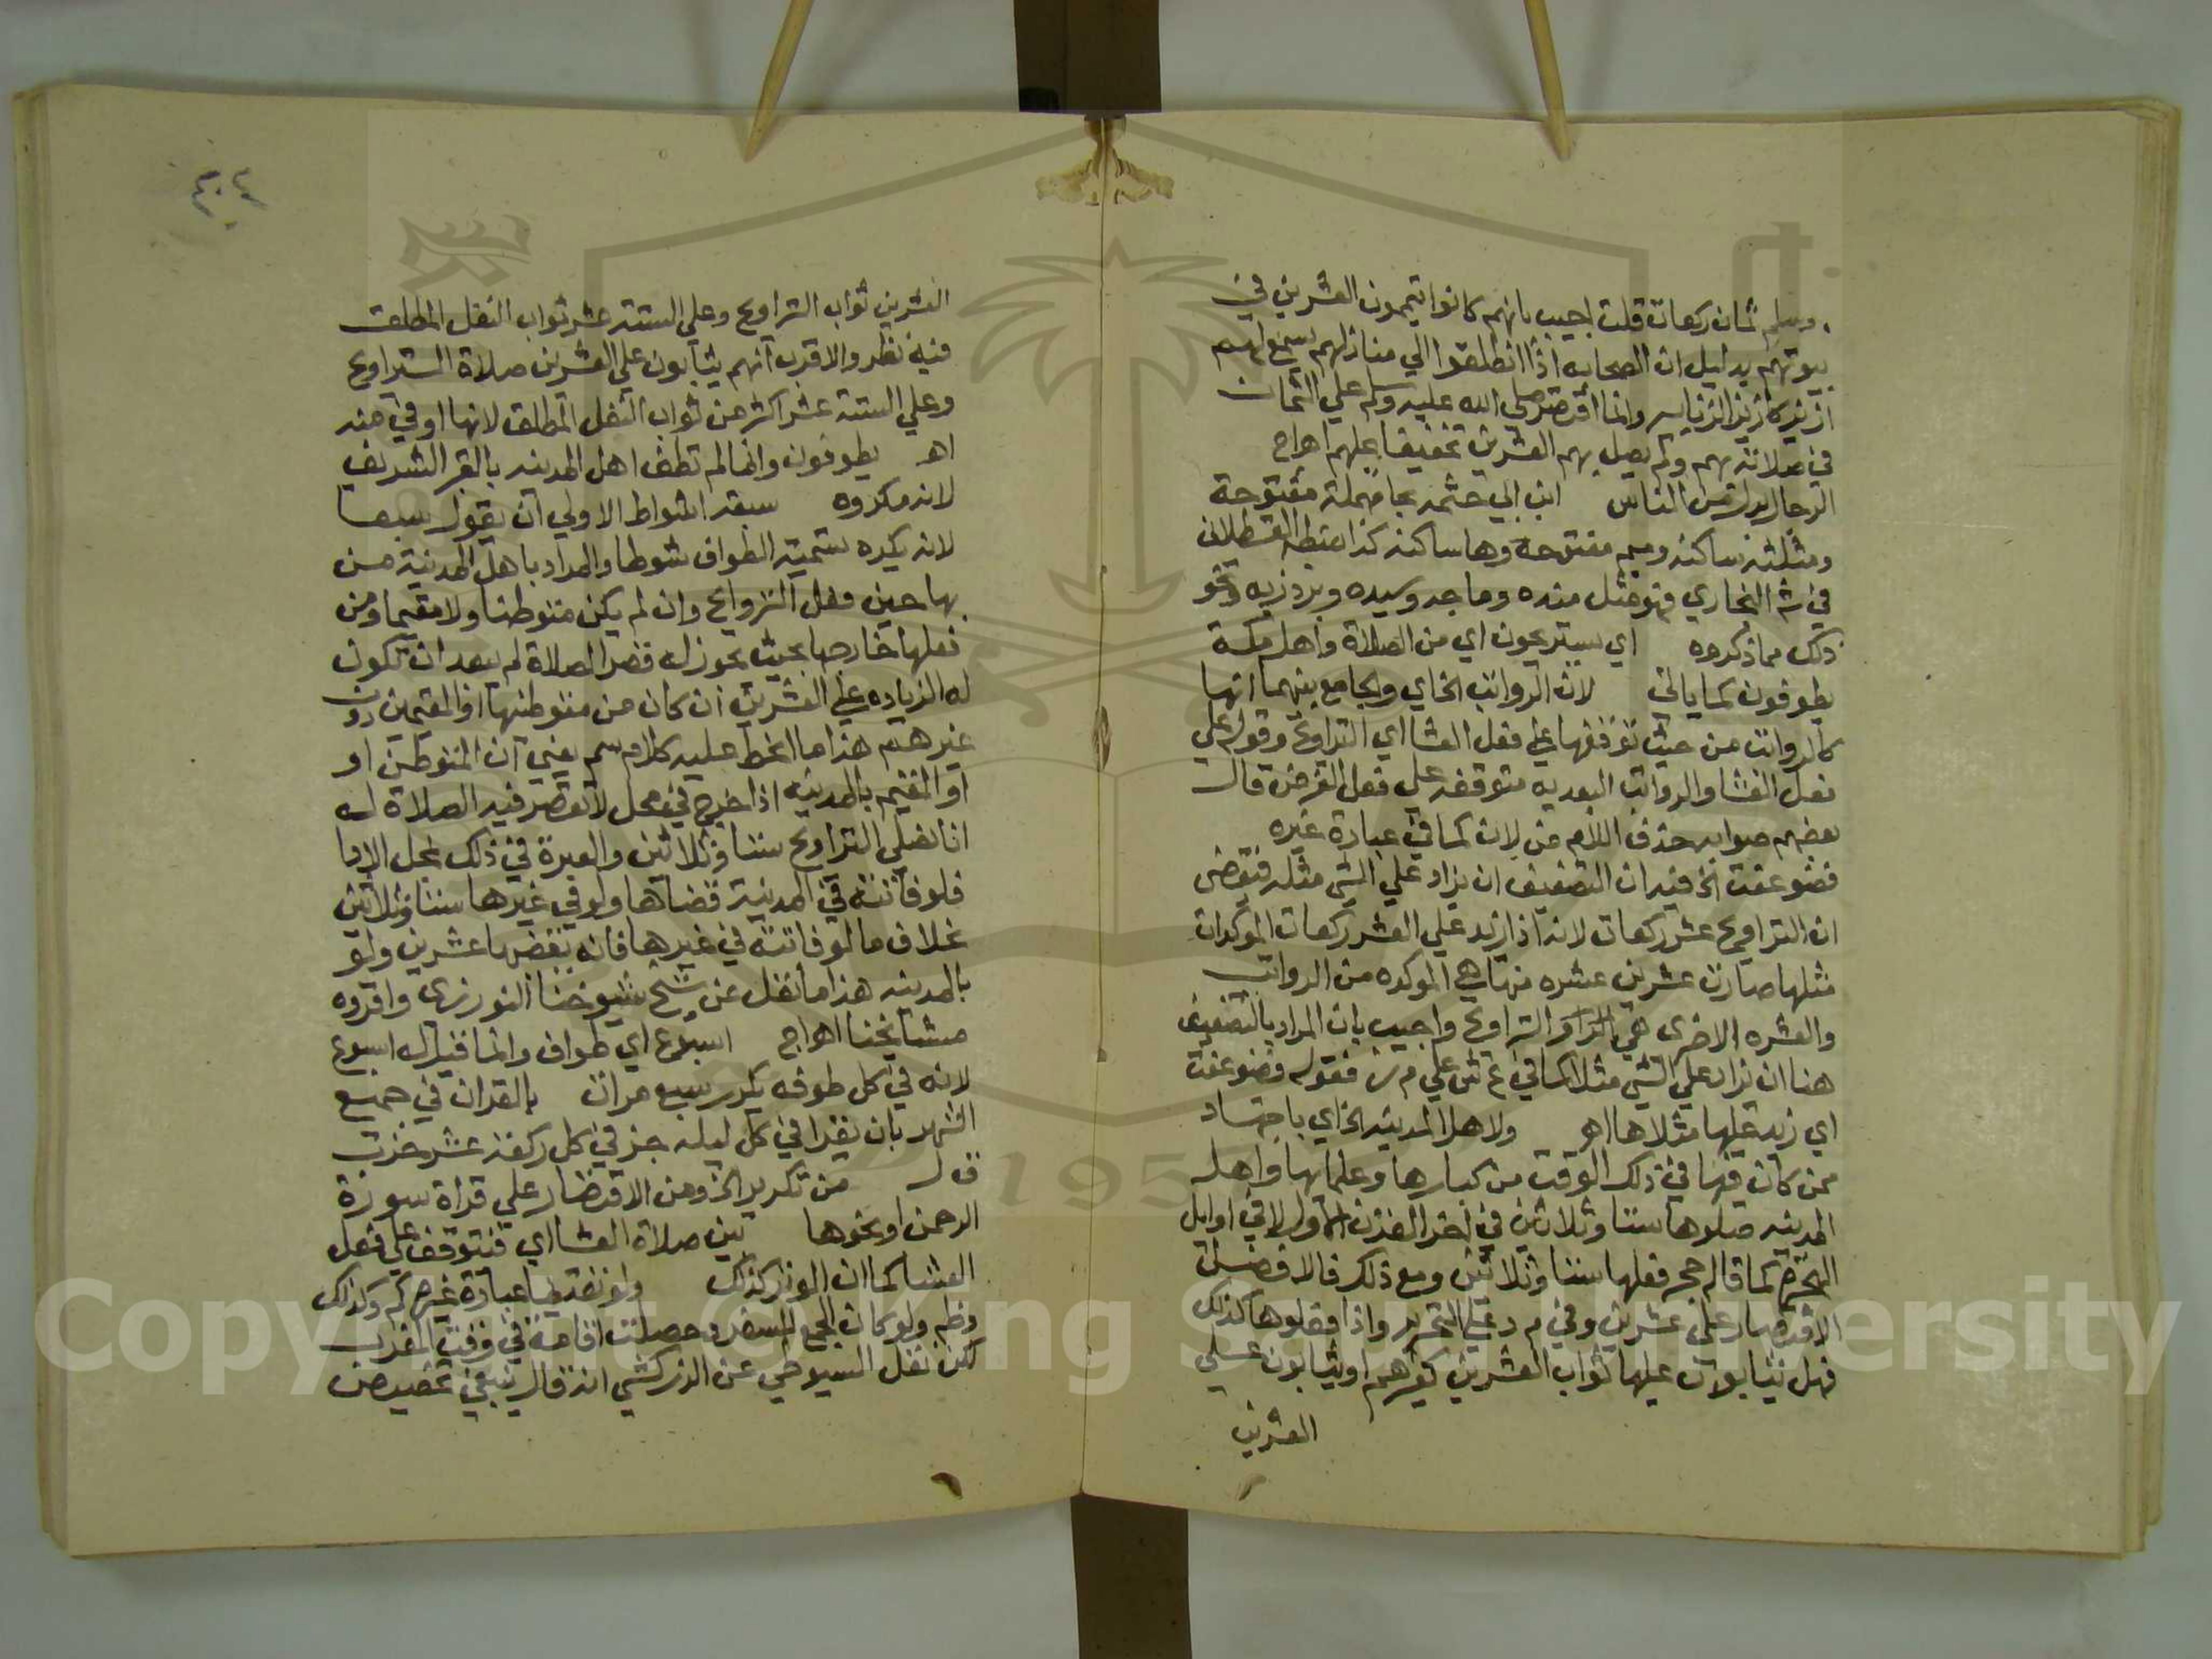 وسلم ثمان ركعات قلت اجيب بانهم كانوا يتممون العشرين في
بيوتهم بدليل ان الصحابه اذا انطلقوا الي منازلهم يسمع لهم
ازيز كازيز الزنابير وانما اقتصر صلي الله عليه وسلم علي الثمان
في صلاته بهم ولم يصل بهم العشرين تخفيفا عليهم اهراج
الرجال الناس ابن ابي حثمه بحا مهملة مفتوحة
ومثلثة ساكنه وميم مفتوحة وها ساكنه كذا ضبطه القسطلاني
في ش البخاري فهو مثل منده وماجه وسيده وبردزبه ونحو
ذلك مما ذكروه اي يستريحون اي من الصلاة واهل مكة
يطوفون كما ياتي لان الرواتب الخ اي والجامع بينهما انها
كالرواتب من حيث توقفها علي فعل العشا اي التراويح وقوله علي
فعل العشا والرواتب البعديه متوقفه علي فعل الفرض قال
بعضهم صوابه حذف اللام من لان كما في عبارة غيره
فضوعفت الخ فيه ان التضعيف ان يزاد علي الشي مثله فيقتضي
ان التراويح عشر ركعات لانه اذا زيد علي العشر ركعات الموكدات
مثلها صارت عشرين عشره منها هي الموكده من الرواتب
والعشره الاخري هي التراويح واجيب بان المراد بالتضعيف
هنا ان يزاد علي الشي مثلاه كما في ع ش علي م ر فقوله فضوعفت
اي زيد عليها مثلاها اهـ ولاهل المدينه الخ اي باجتهاد
ممن كان فيها في ذلك الوقت من كبارها وعلمائها واهل
المدينه صلوها ستا وثلاثين في اخر القرن الاول لا في اوايل
الهجرة كما قاله حجر فعلها ستا وثلاثين ومع ذلك فالافضل
الاقتصار علي عشرين وفي م د علي التحرير واذا فعلوها كذلك
فهل يثابون عليها ثواب العشرين كغيرهم او يثابون علي
العشرين
٤٠٤
العشرين ثواب التراويح وعلي الستة عشر ثواب النفل المطلق
فيه نظر والاقرب انهم يثابون علي العشرين صلاة التراويح
وعلي الستة عشر اكثر من ثواب النفل المطلق لانها اوفي منه
اهـ يطوفون وانما لم تطف اهل المدينه بالقبر الشريف
لانه مكروه سبعة اشواط الاولي ان يقول سبعا
لانه يكره تسمية الطواف شوطا والمراد باهل المدينة من
بها حين فعل التراويح وان لم يكن متوطنا ولا مقيما ومن
فعلها خارجها بحيث يجوز له قصر الصلاة لم يبعد ان تكون
له الزياده علي العشرين ان كان من متوطنيها او المقيمين دون
غيرهم هذا ما انحط عليه كلام سم يعني ان المتوطن او
او المقيم بالمدينه اذا خرج في محل لا تقصر فيه الصلاة له
ان يصلي التراويح ستا وثلاثين والعبرة في ذلك بمحل الادا
فلو فاتته في المدينة قضاها ولو في غيرها ستا وثلاثين
بخلاف ما لو فاتته في غيرها فانه يقضيها عشرين ولو
بالمدينه هذا ما نقل عن شيخ شيوخنا واقروه
مشايخنا اهراج اسبوع اي طواف وانما قيل له اسبوع
لانه في كل طوفه يكرر سبع مرات بالقران في جميع
الشهر بان يقرا في كل ليله جز في كل ركعة عشر
ق ل من تكرير الخ ومن الاقتصار علي قراة سورة
الرحمن او نحوها بين صلاة العشا اي فتتوقف علي فعل
العشا كما ان الوتر كذلك ولو تقديما عبارة غيره وكذلك
وظم ولو كان الجمع للسفر وحصلت اقامة في وقت المغرب
لكن نقل السيوطي عن الزركشي انه قال ينبغي تخصيص